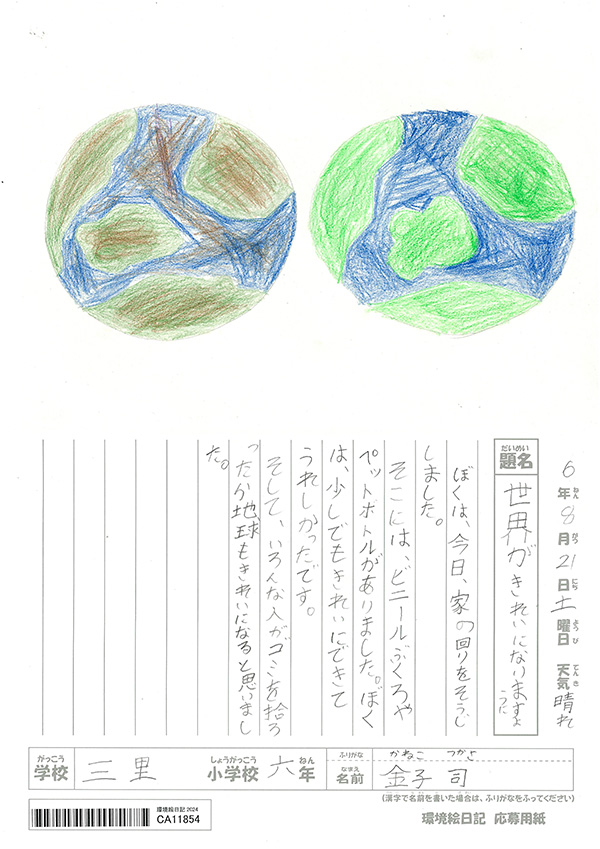 6年ねん8月がつ21日にち土曜日ようび 天気てんき晴れ
題名だいめい 世界がきれいになりますように
ぼくは、今日、家の回りをそうじ
しました。
そこには、ビニールぶくろや
ペットボトルがありました。ぼく
は、少しでもきれいにできて
うれしかったです。
そして、いろんな人がゴミを拾
ったか地球もきれいになると思いまし
た。
がっこう
学校 三里 小学校しょうがっこう 六年ねん
ふりがな かねこ つかさ
名前なまえ 金子 司
(漢字で名前を書いた場合は、ふりがなをふってください)
環境絵日記2024
CA11854
環境絵日記 応募用紙